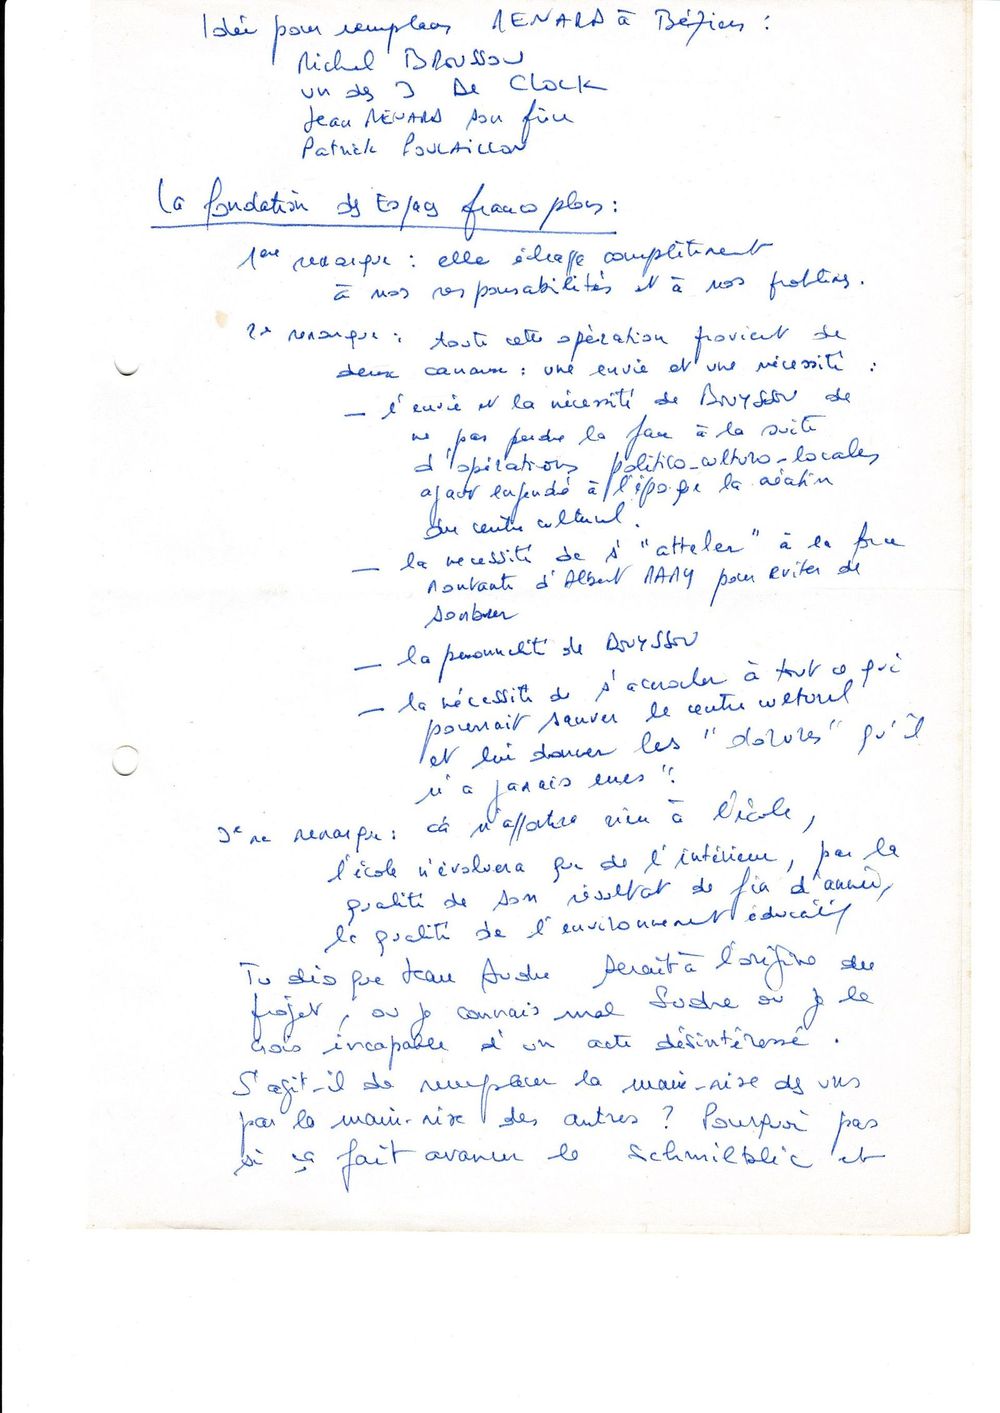 Idée pour remplacer RENARD à Béziers :
Michel BROUSSOU
un des 3 De CLOCK
Jean RENARD son frère
Patrick POURAILLON
La fondation des Espaces francophones :
1ère remarque : elle échappe complètement
à nos responsabilités et à nos problèmes.
2e remarque : toute cette opération provient de
deux canaux : une envie et une nécessité :
- l'envie et la nécessité de BOUYSSOU de
ne pas perdre la face à la suite
d'opérations politico-culturo-locales
ayant engendré à l'époque la création
du centre culturel.
- la nécessité de s'"atteler" à la force
montante d'Albert MARY pour éviter de
sombrer
- la personnalité de BOUYSSOU
- la nécessité de s'accrocher à tout ce qui
pourrait sauver le centre culturel
et lui donner les "dorures" qu'il
n'a jamais eues".
3e me remarque : cà n'apporte rien à l'école,
l'école n'évoluera que de l'intérieur, par la
qualité de son résultat de fin d'année,
la qualité de l'environnement éducatif
Tu dis que Jean Sudre serait à l'origine du
projet, ou je connais mal Sudre ou je le
crois incapable d'un acte désintéressé.
S'agit-il de remplacer la main-mise des uns
par la main-mise des autres ? Pourquoi pas
si ça fait avancer le Schmilblic et